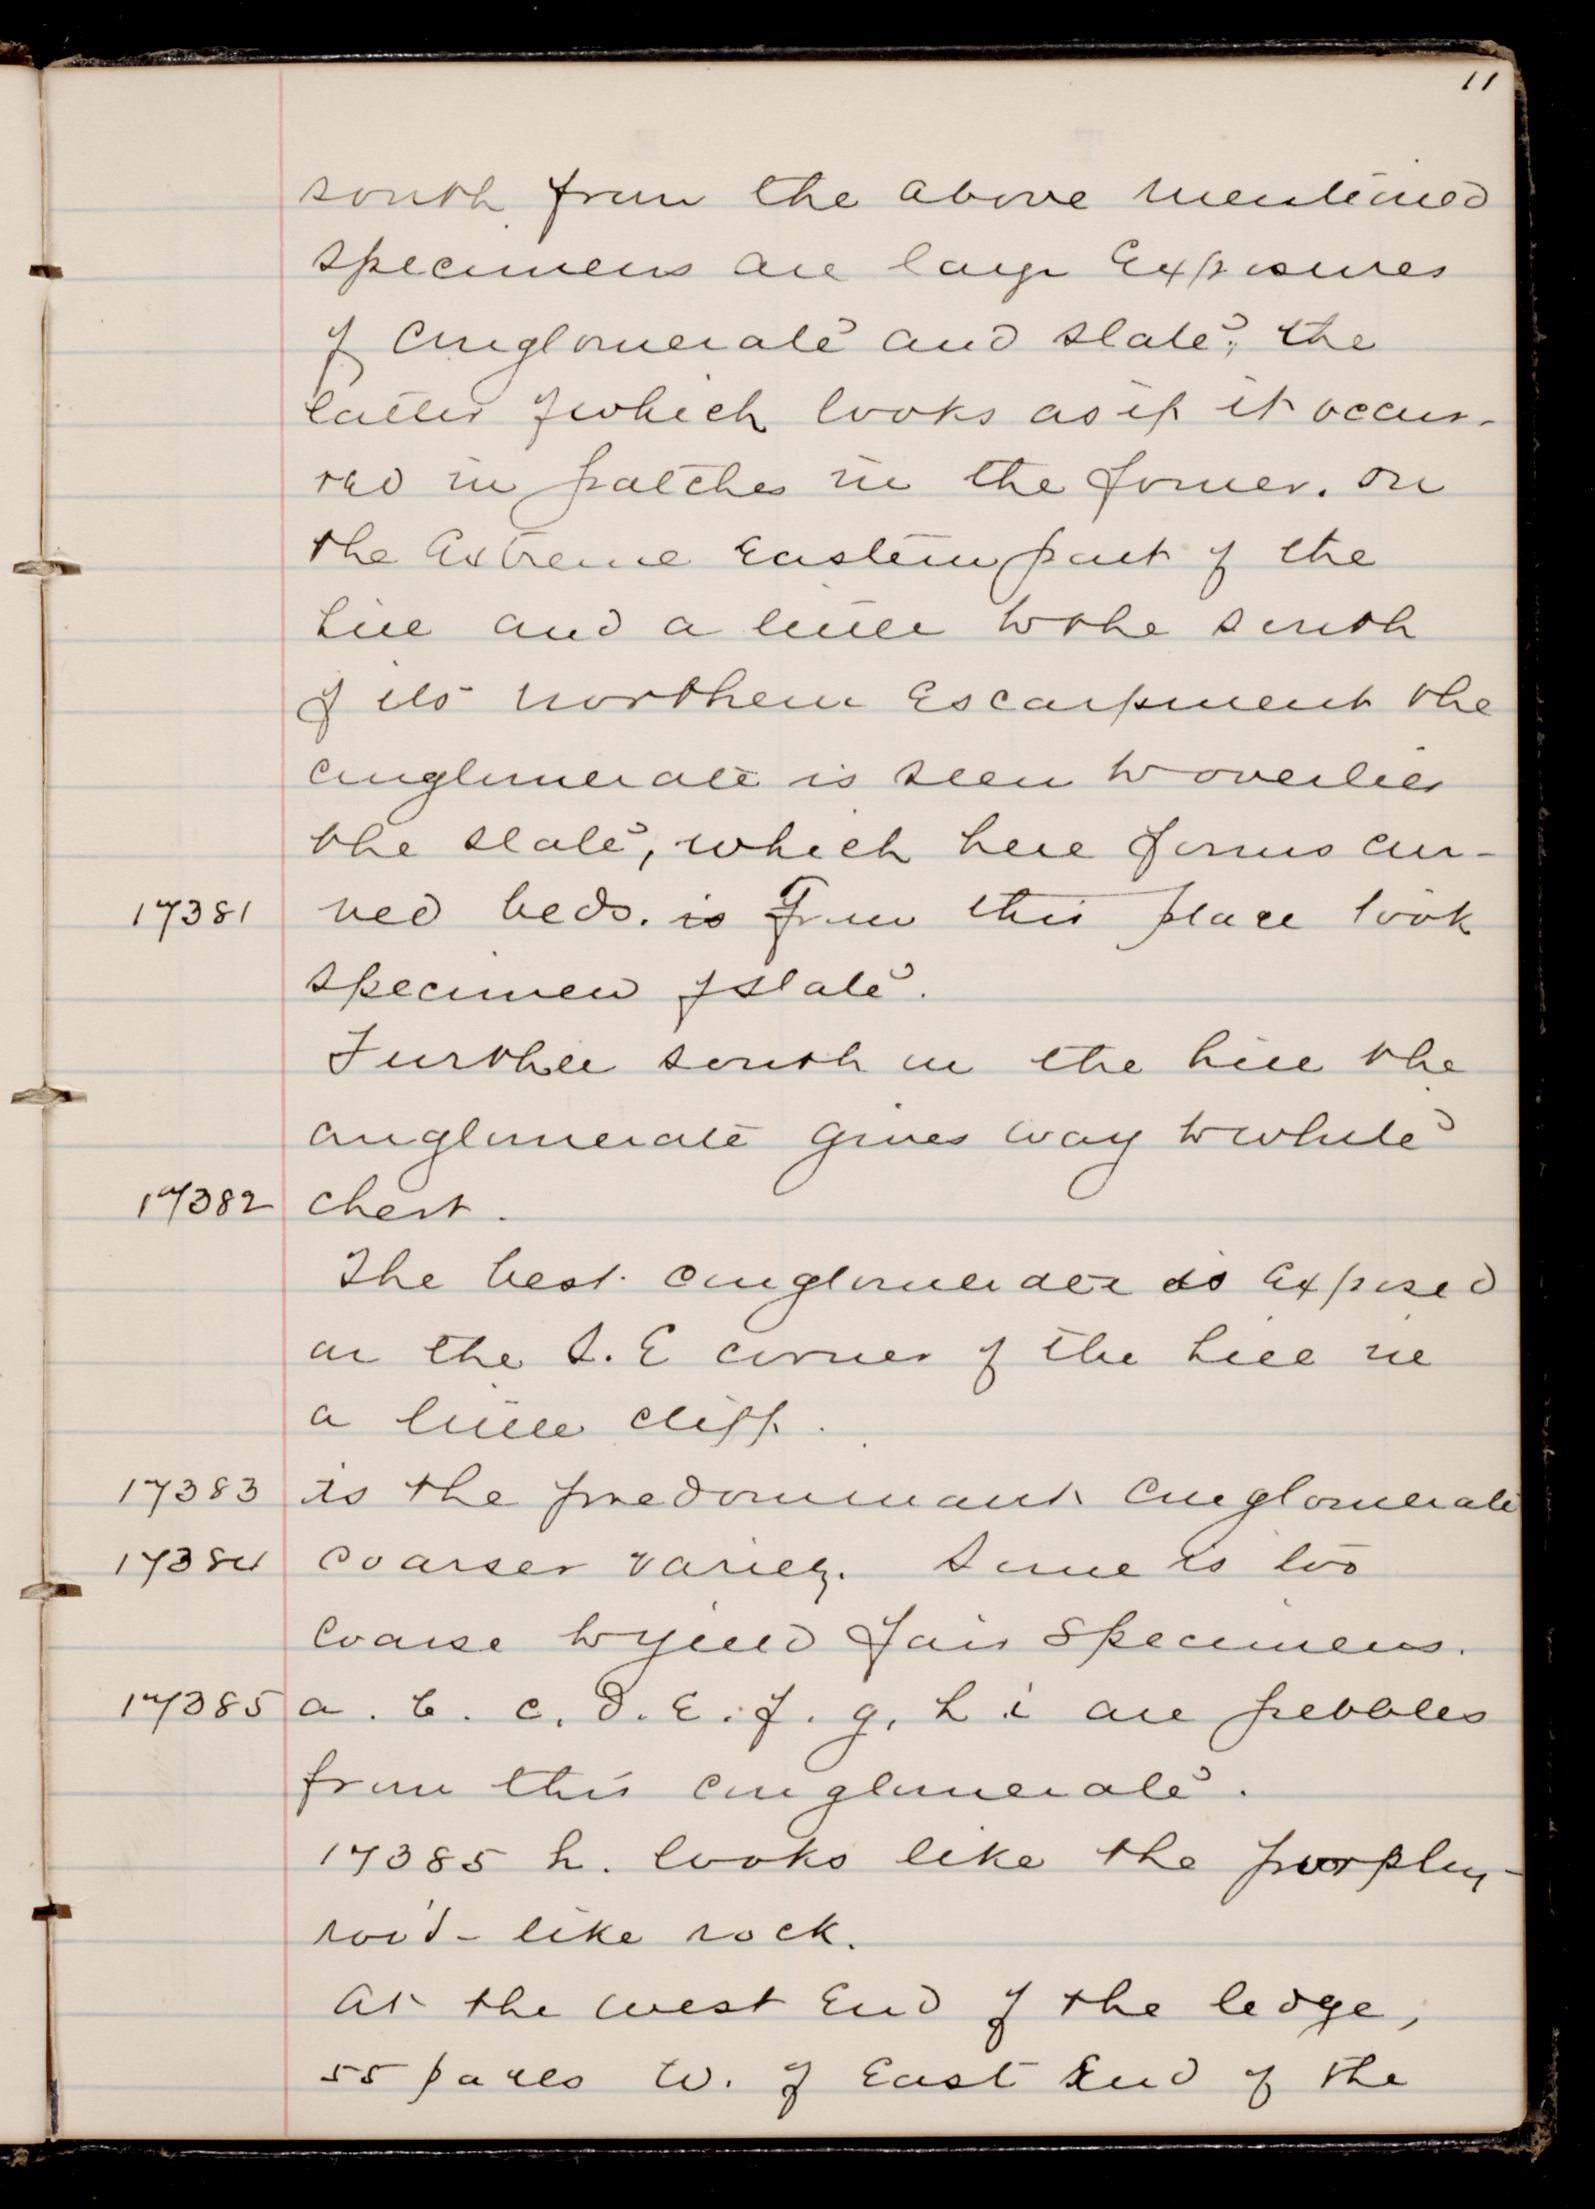 11
south from the above mentioned
specimens are large exposures
of conglomerate and slate; the
latter of which looks as if it occur-
red in patches in the former. On
the extreme eastern part of the
hill and a little to the south
of its northern escarpment the
conglomerate is seen to overlies
the slate, which here forms cur-
17381 ved beds. is From this place took
specimen of slate.
Further south on the hill the
conglomerate gives way to white
17382 chert.
The best conglomerate is exposed
on the S.E corner of the hill in
a little cliff.
17383 is the predominant conglomerate
17384 coarser variety. Some is too
coarse to yield fair specimens.
17385 a. b. c. d. e. f. g, h i are pebbles
from this conglomerate.
17385 h. looks like the porphy-
roid-like rock.
At the west end of the ledge,
55 paces W. of East end of the